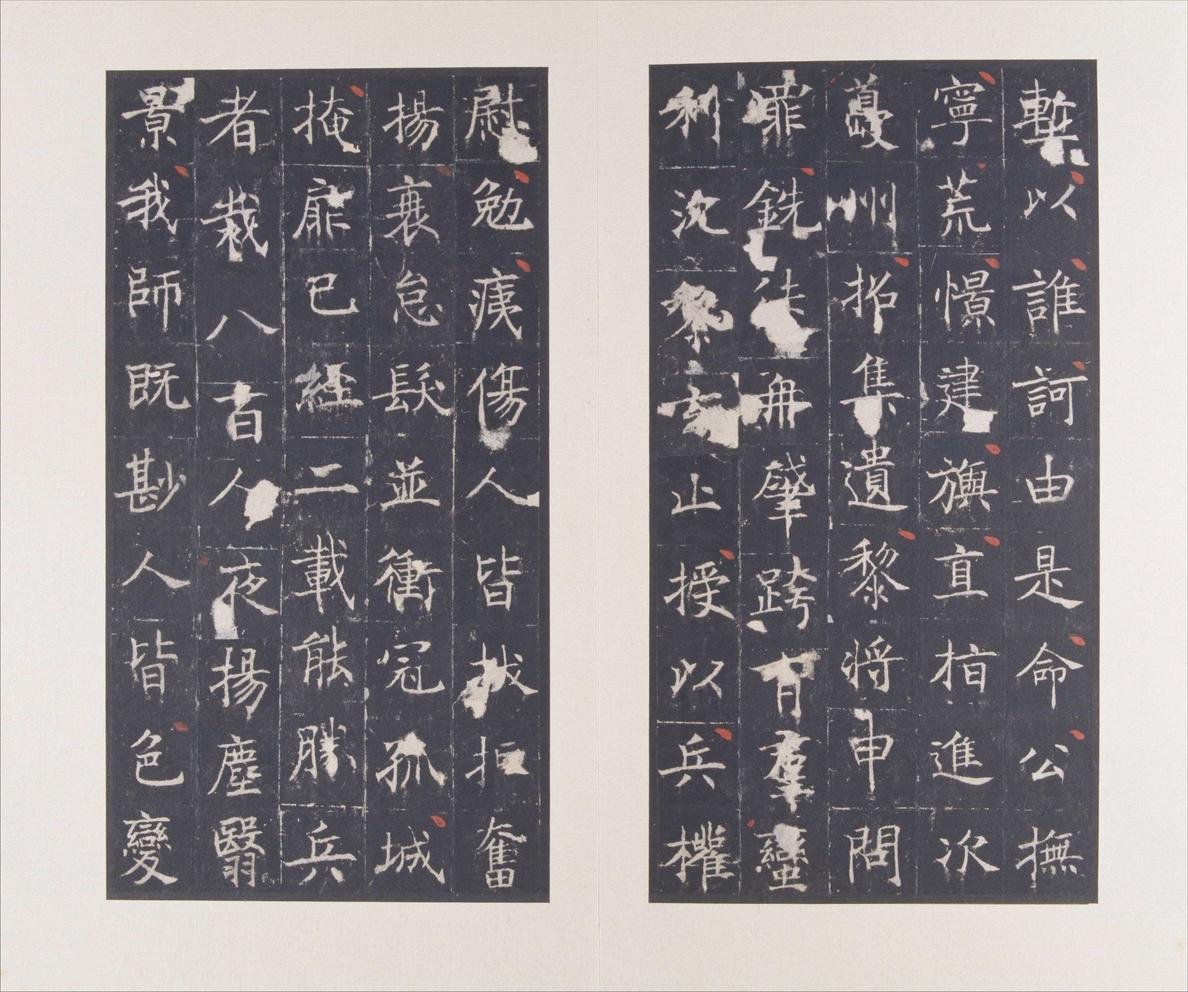 塹以誰訶由是命公撫
寧荒憬建旟直指進次
夔州招集遺黎將申問
罪銑徒舟肇跨有羣蠻
利沈黎止授以兵權
慰勉痍傷人皆拒奮
揚衰怠髮並衝冠孤城
掩扉已經二載能勝兵
者裁八百人夜揚塵翳
景我師既尠人皆色變